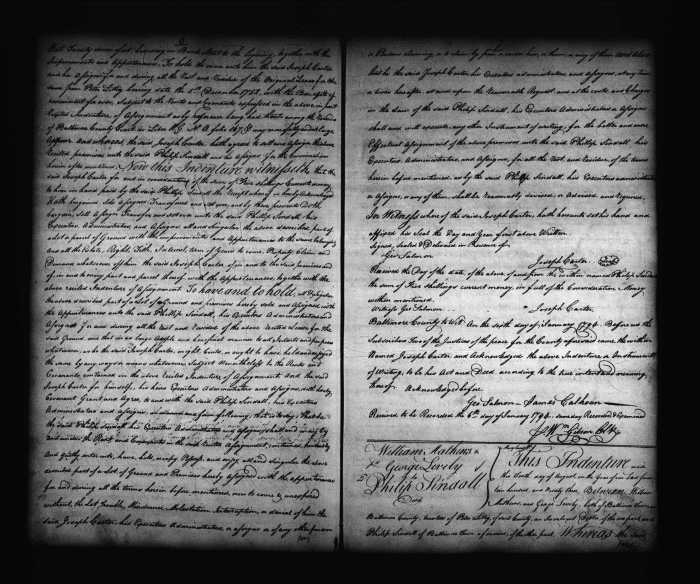 6
Improvements and Appurtenances, To hold the same with him the said Joseph Carter
and his Assigns for and during all the Rest and Residue of the Original Lease for the
same from Peter Litzig bearing date the 5th December 1783, with the Benefit of
renewment forever, Subject to the Rents and Covenants expressed in the above in part
recited Indenture of Assignment as by reference being had thereto among the Records
of Baltimore County Court in Liber WG No folio may more fully and at large
Appear. And whereas, the said Joseph Carter, hath agreed to sell and Assign the above
recited premises, with the said Philip Sindall and his Assigns for the Consideration
herein after mentioned, Now this Indenture witnesseth that the
said Joseph Carter for and in consideration of the sum of Five shillings Current money
to him in hand paid by the said Philip Sindall the Receipt whereof is hereby Acknowledged
Hath bargained Sold Assigned Transferred and set over, and by these presents Doth
bargain, Sell Assign Transfer and set over unto the said Philip Sindall his
Executors Administrators and Assigns, All and Singular the above described part of
a Lot or parcel of Ground with the improvements and Appurtenances to the same belonging
and all the Estate, Right, Title, Interest, Term of Years to come, Property, Claim and
Demand whatsoever of him the said Joseph Carter, of in and to the said premises and
of in and to every part and parcel thereof with the Appurtenances, together with the
above recited Indenture of Assignment. To have and to hold, all & Singular
the above described part of a Lot of Ground and premises hereby sold and Assigned with
the Appurtenances unto the said Philip Sindall, his Executors Administrators and
Assigns for and during all the rest and residue of the above recited Lease for the
said Ground, and that in as large Ample and beneficial manner to all Intents and purposes
whatsoever, as he the said Joseph Carter, might Could, or ought to have held and enjoyed
the same by any ways or means whatsoever, Subject nevertheless to the Rents and
Covenants contained in the above recited Indenture of Assignment. And the said
Joseph Carter for himself, his heirs Executors Administrators and Assigns, doth hereby,
Covenant Grant and Agree, to and with the said Philip Sindall, his Executors
Administrators and Assigns, in manner and form following, that is to say, That he
the said Philip Sindall his Executors Administrators and Assigns, shall and may by
and under the Rent and Covenants in the said recited Assignment contained, peaceably
and quietly enter into, have, hold, occupy, Possess and enjoy all and Singular the above
described part of a Lot of Ground and Premises hereby assigned with the appurtenances
for and during all the terms herein before mentioned, now to come & unexpired
without, the Let, Trouble, Hindrance Molestation, Interruption, or denial of him the
said Joseph Carter, his Executors Administrators, or Assigns or of any other person
or Persons claiming or to claim by from or under him, or them, or any of them And Also
that he the said Joseph Carter his Executors administrators, and Assigns, at any time
or times hereafter, at and upon the reasonable Request and at the costs, and Charges
in the Law of the said Philip Sindall, his Executors Administrators or Assigns
shall and will execute any other Instrument of writing, for the better and more
Effectual Assignment of the above premises with the said Philip Sindall his
Executors, Administrators and Assigns, for all the rest, and residue, of the terms
herein before mentioned, as by the said Philip Sindall, his Executors administrators
or Assigns, or any of them, shall be reasonably devised, or Advised, and required,
In Witness whereof the said Joseph Carter, hath hereunto set his hand and
affixed his Seal the Day and Year first above Written
Signed, Sealed & Delivered in Presence of
Geo Salmon
Joseph Carter
Received the Day of the date of the above of and from the within named Philip Sindall
the sum of Five shillings current money, in full of the Consideration Money
within mentioned.
Witness Geo Salmon Joseph Carter
Baltimore County to Wit. On the sixth day of January 1794. Before us the
Subscribers Two of the Justices of the peace for the County aforesaid came the within
Named Joseph Carter, and Acknowledged the above Indenture or Instrument
of Writing, to be his Act and Deed according to the true intent and meaning,
thereof. Acknowledged before
Geo Salmon James Calhoun
Received to be Recorded the 6th day of January 1794. same day Recorded & Examined
Wm Gibson Clk
William Mathews &
George Levely
To
Philip Sindall
This Indenture made
the day of August in the Year of our Lord seventeen
hundred, and Ninety three, Between William
Mathews, and George Levely, both of Baltimore
Baltimore County, of the one part and
Philip Sindall of Baltimore Town of the other part. Whereas the said